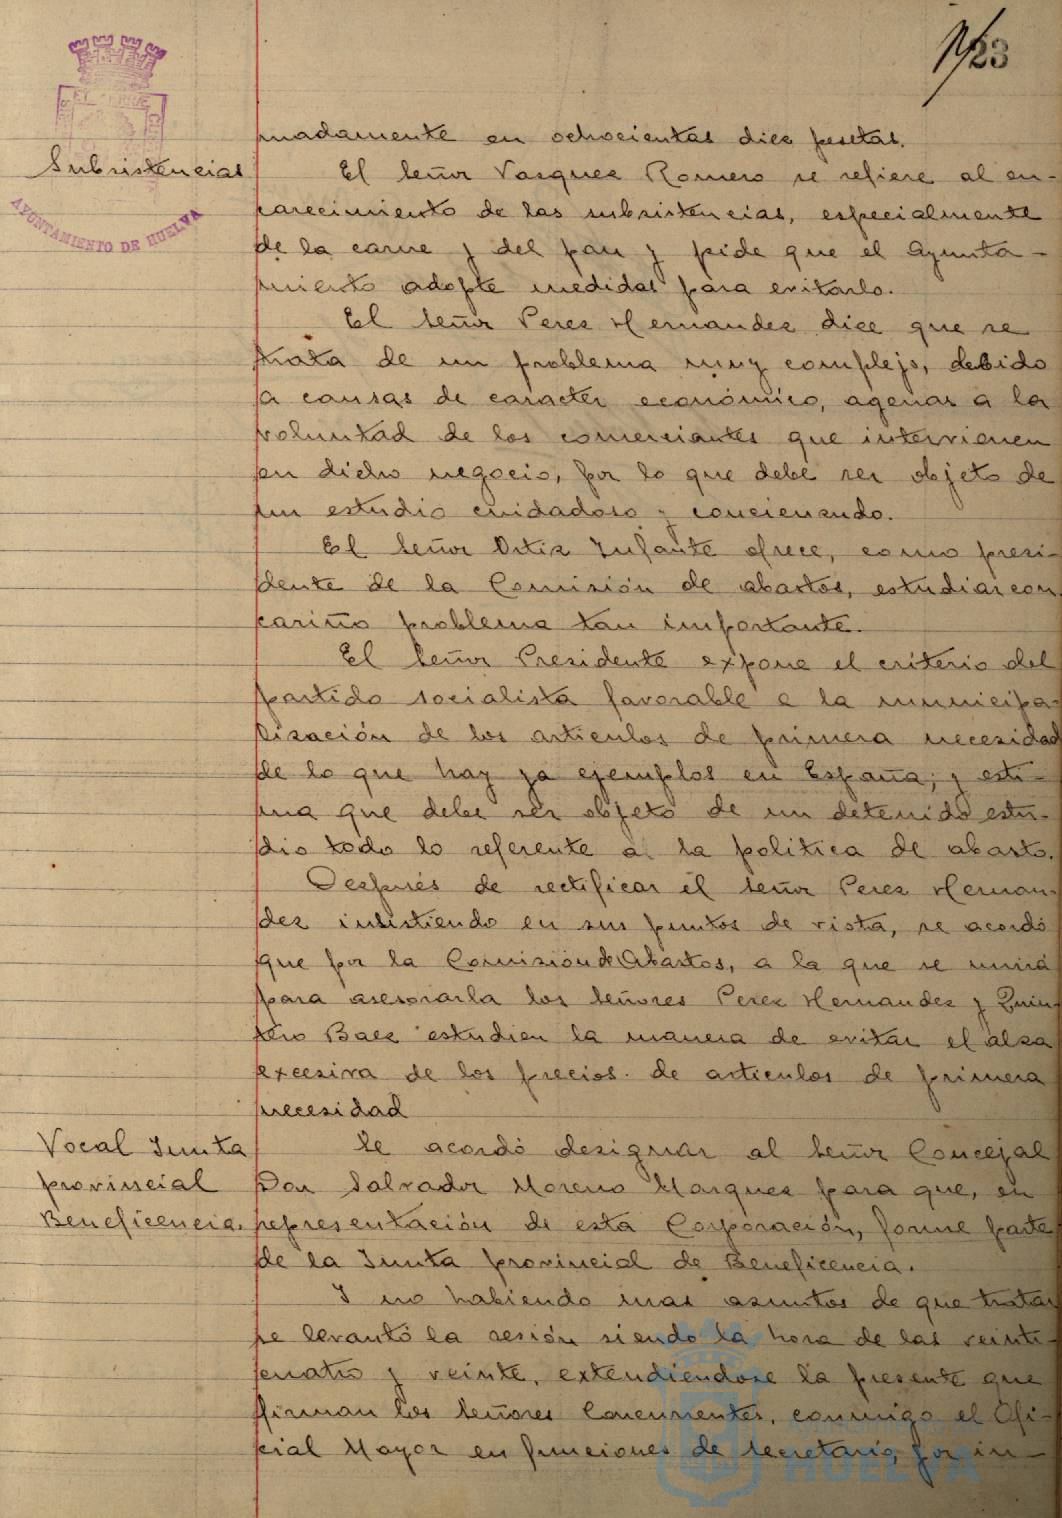 123
madamente en ochocientas diez pesetas.
Subsistencias
El Señor Vasquez Romero se refiere al en-
carecimiento de las subsistencias, especialmente
de la carne y del pan y pide que el Ayunta-
miento adopte medidas para evitarlo.
El Señor Perez Hernandez dice que se
trata de un problema muy complejo, debido
a causas de caracter económico, agenas a la
voluntad de los comerciantes que intervienen
en dicho negocio, por lo que debe ser objeto de
un estudio cuidadoso y concienzudo.
El Señor Ortiz Infante ofrece, como presi-
dente de la Comisión de abastos, estudiar con
cariño problema tan importante.
El Señor Presidente expone el criterio del
partido socialista favorable a la municipa-
lización de los articulos de primera necesidad
de lo que hay ya ejemplos en España; y esti-
ma que debe ser objeto de un detenido estu-
dio todo lo referente a la politica de abasto.
Después de rectificar el Señor Perez Hernan-
dez insistiendo en sus puntos de vista, se acordó
que por la Comisión de Abastos, a la que se unirá
para asesorarla los Señores Perez Hernandez y Quin-
tero Baez estudien la manera de evitar el alza
excesiva de los precios de articulos de primera
necesidad
Vocal Junta
provincial
Beneficencia.
Se acordó designar al Señor Concejal
Don Salvador Moreno Marquez para que, en
representación de esta Corporación, forme parte
de la Junta provincial de Beneficencia.
Y no habiendo mas asuntos de que tratar
se levantó la sesión siendo la hora de las veinti-
cuatro y veinte, extendiéndose la presente que
firman los Señores Concurrentes, conmigo el Ofi-
cial Mayor en funciones de Secretario, por in-
AYUNTAMIENTO DE HUELVA
HUELVA